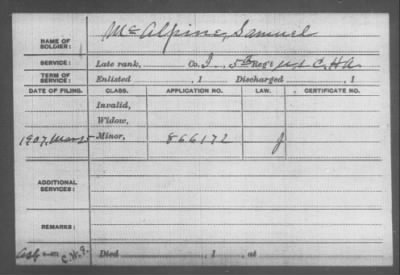 NAME OF SOLDIER: McAlpine, Samuel
SERVICE: Late rank, Co. I, 5th Reg't U.S. C. H.A.
TERM OF SERVICE: Enlisted , 1 Discharged , 1
DATE OF FILING. CLASS. APPLICATION NO. LAW. CERTIFICATE NO.
Invalid,
Widow,
1907, Minor, 866172
ADDITIONAL SERVICES:
REMARKS:
Died , 1 , at